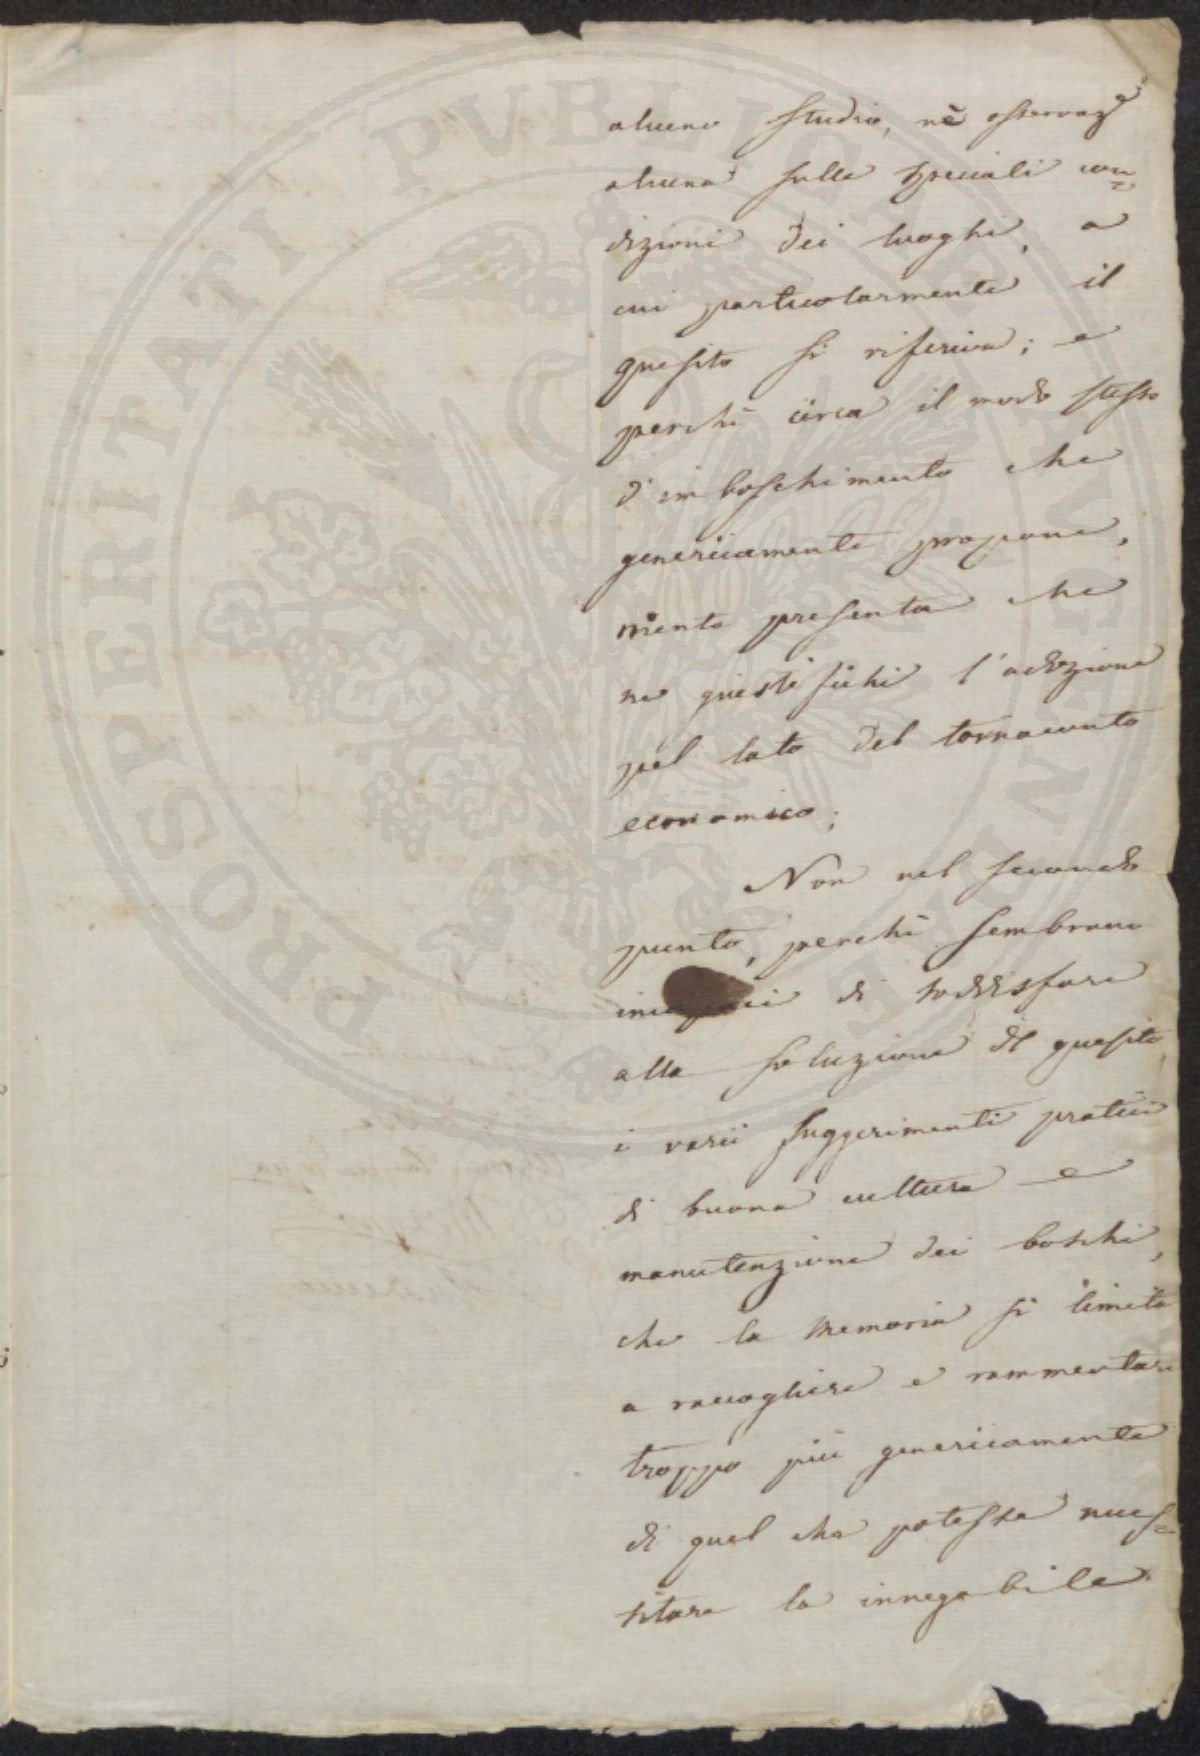 alcuno studio, nè osservaz.e
alcuna sulle speciali con=
dizioni dei luoghi, a
cui particolarmente il
quesito si riferiva; e
perchè circa il modo stesso
d'imboschimento che
genericamente propone,
niente presenta che
ne giustifichi l'adozione
pel lato del tornaconto
economico;
Non nel secondo
punto, perchè sembrano
incapaci di soddisfare
alla soluzione del quesito,
i varii suggerimenti pratici
di buona cultura e
manutenzione dei boschi,
che la Memoria si limita
a raccogliere e rammentare
troppo più genericamente
di quel che potesse neces=
sitare la innegabile
PROSPERITATI PVBLICAE AVGENDAE